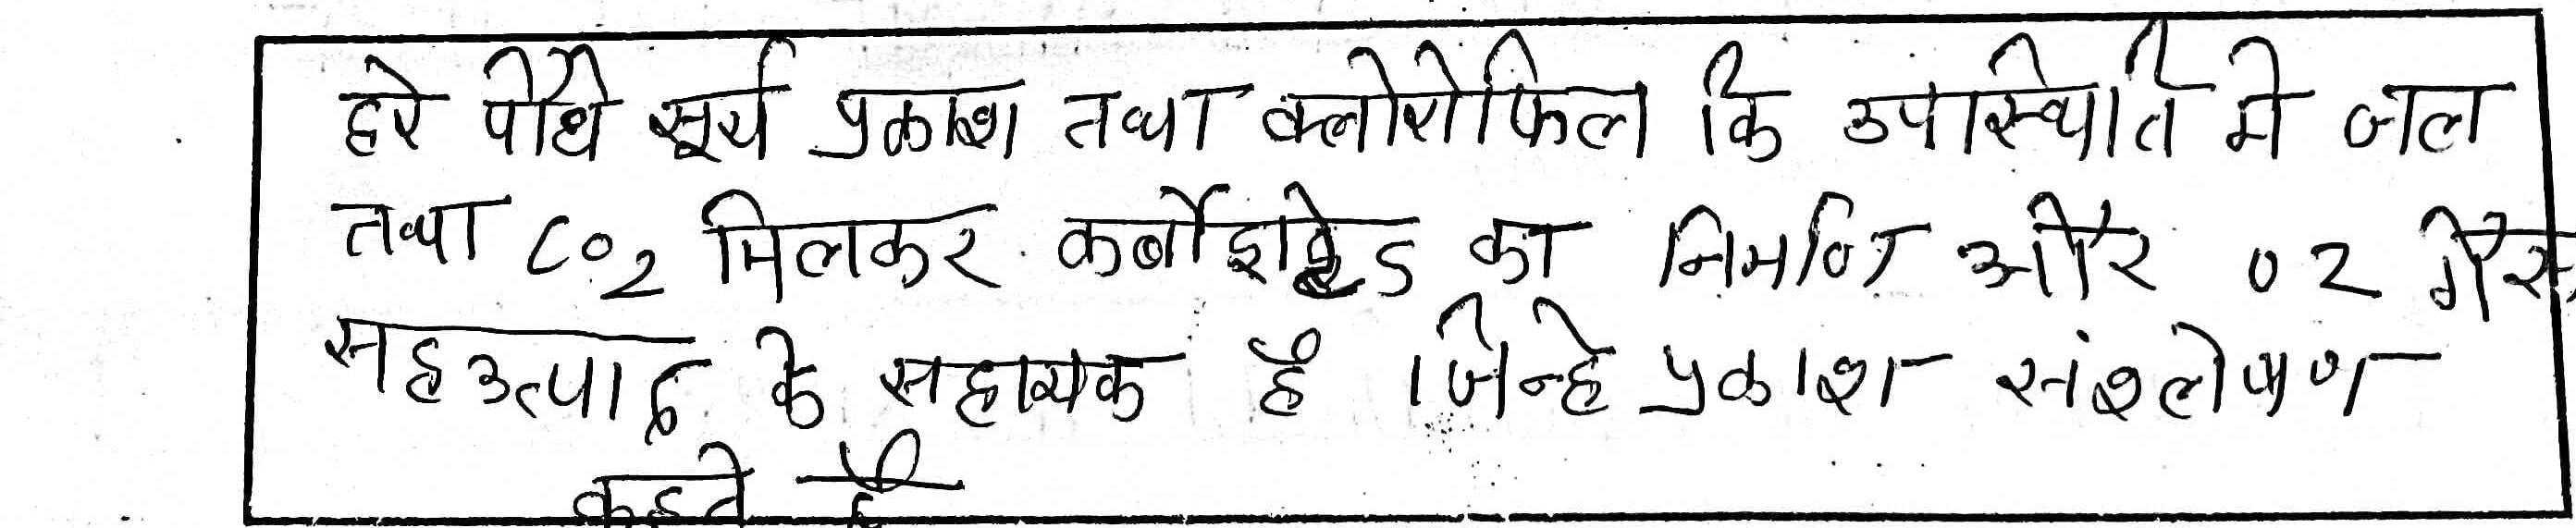 हरे पौधे सूर्य प्रकाश तथा क्लोरोफिल कि उपास्थिति मे जल
तथा CO2 मिलकर कर्बोहाइड्रेड का निर्माण और 02 गैस
सहउत्पाद के सहायक हैं जिन्हे प्रकाश संश्लेषण
कहते है